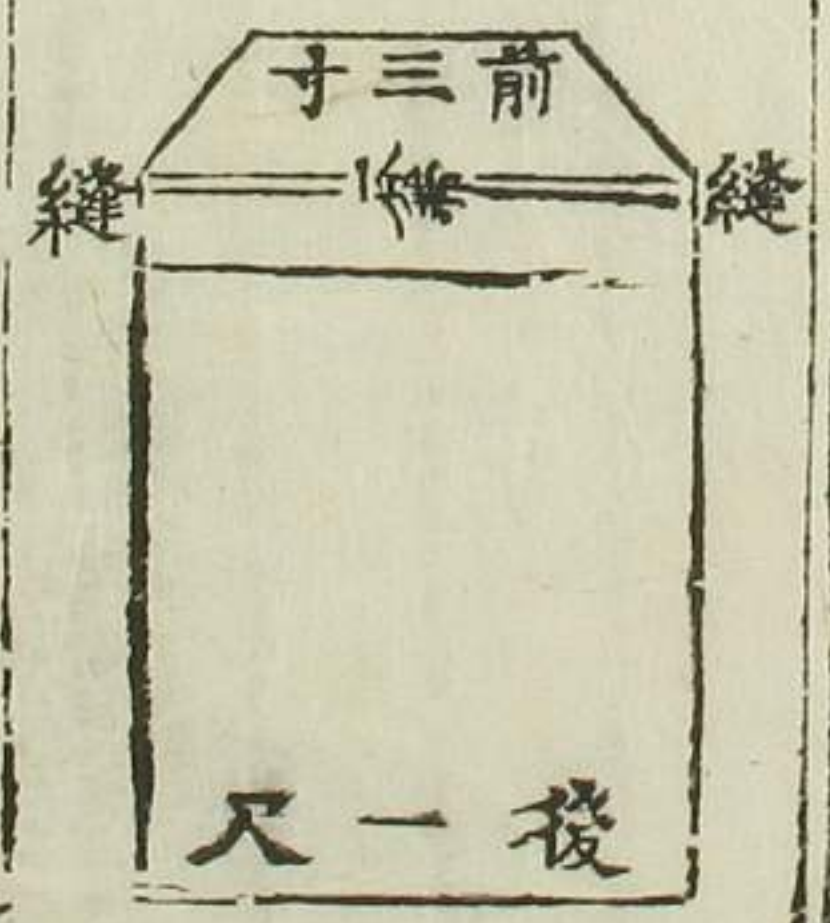 前三寸
縫
縫
後一尺